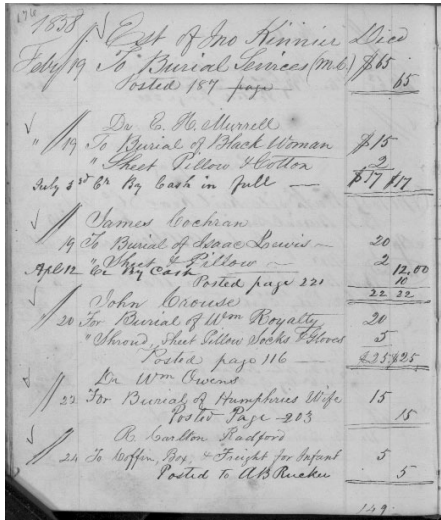 176
1838 Est of Jno Kinnier Decd
Feby 19 To Burial Services (M.C.) $65
Posted 187 page 65
Dr E. H. Murrell
" 19 To Burial of Black Woman $15
" Sheet Pillow & Cotton 2
July 3rd Cr By Cash in full — $17 $17
James Cochran
19 To Burial of Isaac Lewis — 20
" Sheet & Pillow — 2
Apl 12 Cr By Cash 12.00
Posted page 221 10
22 22
John Crouse
20 For Burial of Wm Royalty 20
" Shroud, Sheet Pillow Socks & Gloves 5
Posted page 116 — $25 $25
Dr Wm Owens
22 For Burial of Humphries Wife 15
Posted Page 203 15
R Carlton Radford
24 To Coffin, Box, & Freight for Infant 5
Posted to A B Rucker 5
149.